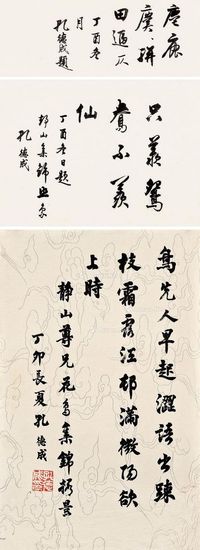 麀鹿
麌〻騈
田逼仄
丁酉冬
月
孔德成題
只羨鴛
鴦不羨
仙
丁酉冬日題
静山集錦照象
孔德成
鳥先人早起澀語出踈
枝霜露江邨滿微陽欲
上時
静山尊兄花鳥集錦攝景
丁卯長夏孔德成